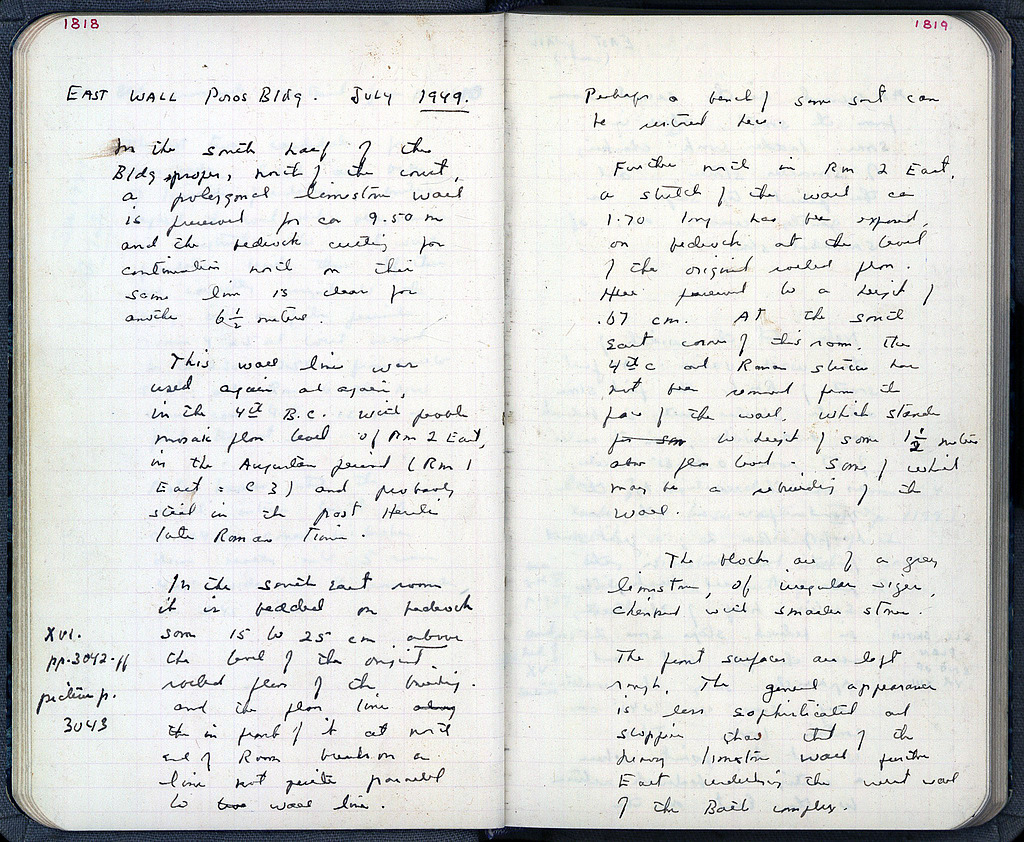 1818
EAST WALL Poros Bldg. July 1949.
In the south half of the
Bldg proper, north of the court,
a polygonal limestone wall
is preserved for ca 9.50 m
and the bedrock cutting for
continuation north on this
same line is clear for
another 6 1/2 meters.
This wall line was
used again and again,
in the 4th B.C. with pebble
mosaic floor level of Rm 2 East,
in the Augustan period (Rm 1
East = C 3) and probably
still in the post Herulian
late Roman Times.
In the South East room
it is bedded on bedrock
XVI.
pp. 3042-ff
picture p.
3043
some 15 to 25 cm above
the level of the original
rolled floor of the building.
and the floor line along
the in front of it at north
end of Room breaks on a
line not quite parallel
to wall line.
1819
Perhaps a bench of some sort can
be restored here.
Further north in Rm 2 East,
a stretch of the wall ca
1.70 long has been exposed,
on bedrock at the level
of the original rolled floor.
Here preserved to a height of
.67 cm. At the south
East corner of this room the
4th c and Roman stuccos have
not been removed from the
face of the wall, which stands
for some to height of some 1 1/2 meters
above floor level - Some of which
may be a rebuilding of the
wall.
The blocks are of a grey
limestone, of irregular sizes,
chinked with smaller stones.
The front surfaces are left
rough. The general appearance
is less sophisticated and
sloppier than that of the
heavy limestone wall further
East underlying the west wall
of the Bath complex.